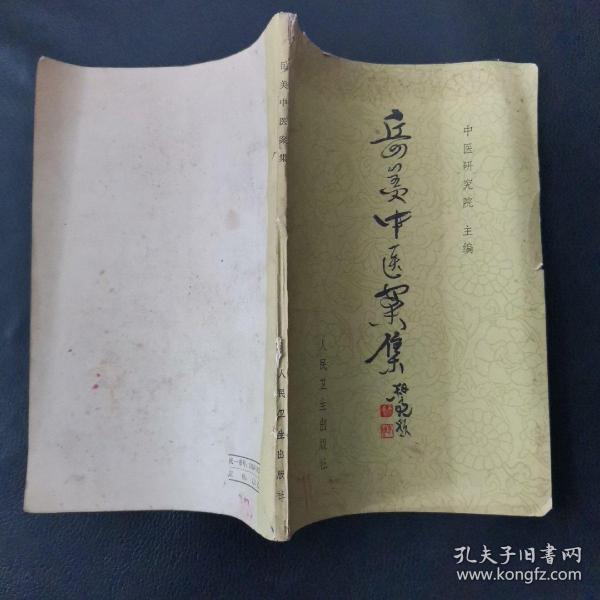 岳美中医案集
中医研究院 主编
人民卫生出版社
岳美中医案集
人民卫生出版社
统一书号
定价
孔夫子旧书网
www.kongfz.com